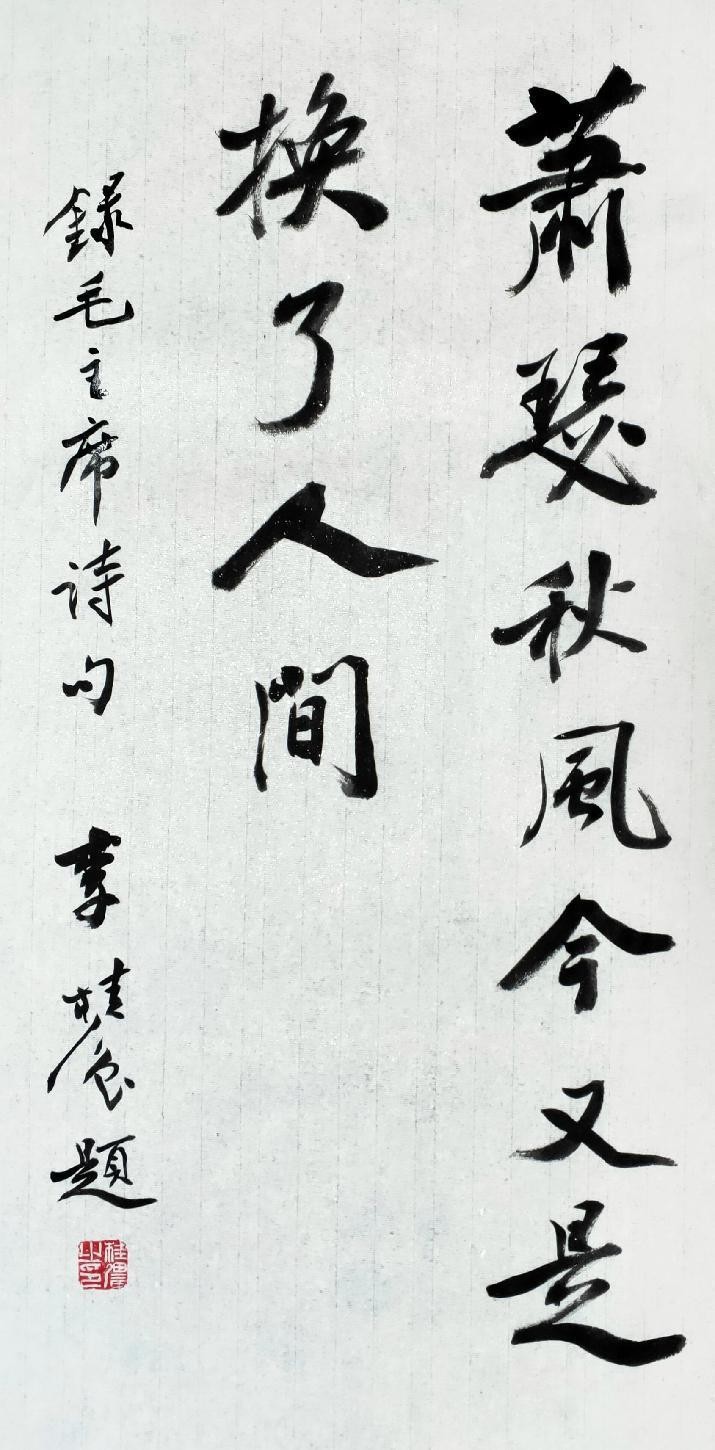 蕭瑟秋風今又是
換了人間
錄毛主席詩句 李桂題